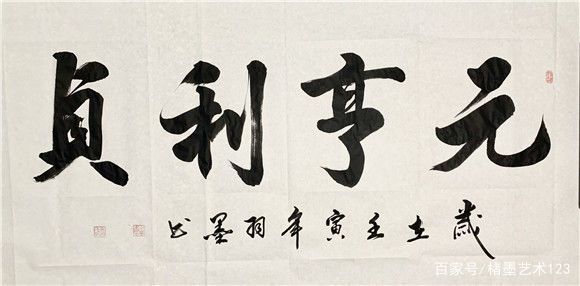 元亨利貞
歲在壬寅年羽墨书
百家号/楮墨艺术123